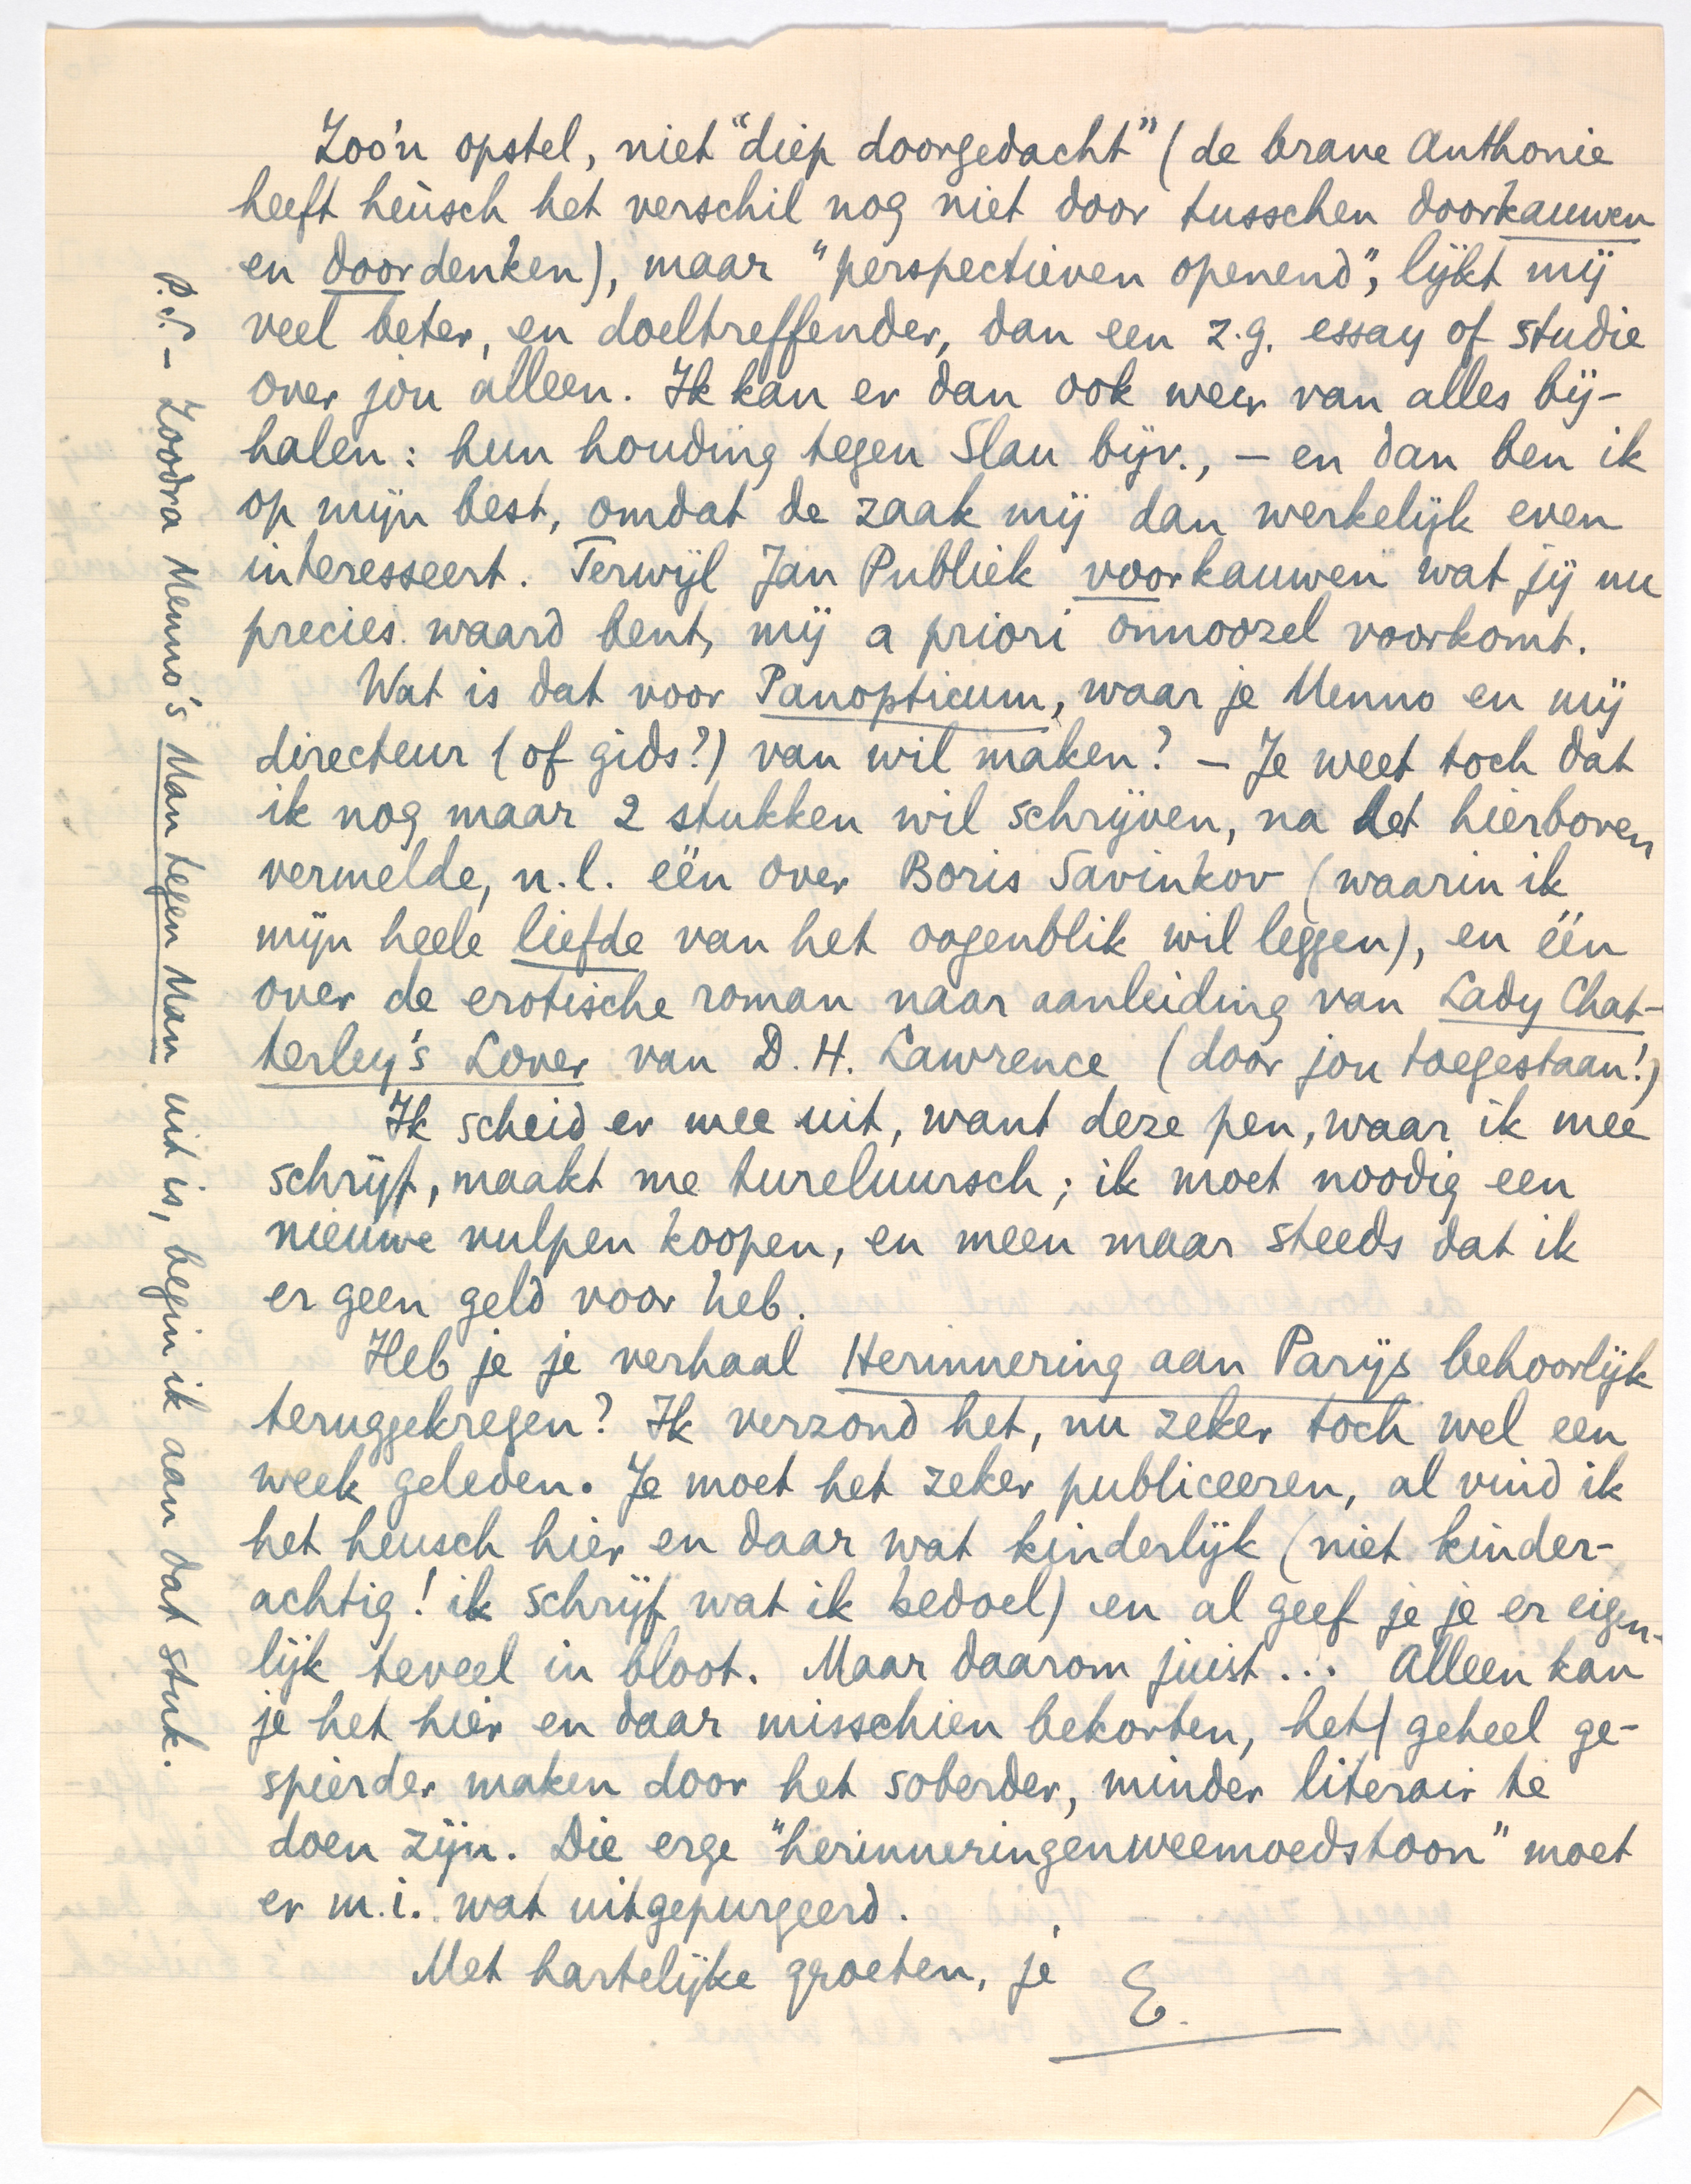 Zoo'n opstel, niet "diep doorgedacht" (de brave Anthonie
heeft heusch het verschil nog niet door tusschen doorkauwen
en doordenken), maar "perspectieven openend", lijkt mij
veel beter, en doeltreffender, dan een z.g. essay of studie
over jou alleen. Ik kan er dan ook weer van alles bij-
halen: hun houding tegen Slau bijv., – en dan ben ik
op mijn best, omdat de zaak mij dan werkelijk even
interesseert. Terwijl Jan Publiek voorkauwen wat jij nu
precies waard bent, mij a priori onnoozel voorkomt.
Wat is dat voor Panopticum, waar je Menno en mij
directeur (of gids?) van wil maken? – Je weet toch dat
ik nog maar 2 stukken wil schrijven, na het hierboven
vermelde, n.l. één over Boris Savinkov (waarin ik
mijn heele liefde van het oogenblik wil leggen), en één
over de erotische roman naar aanleiding van Lady Chat-
terley's Lover van D. H. Lawrence (door jou toegestaan!)
Ik scheid er mee uit, want deze pen, waar ik mee
schrijf, maakt me tureluursch; ik moet noodig een
nieuwe vulpen koopen, en meen maar steeds dat ik
er geen geld voor heb.
Heb je je verhaal Herinnering aan Parijs behoorlijk
teruggekregen? Ik verzond het, nu zeker toch wel een
week geleden. Je moet het zeker publiceeren, al vind ik
het heusch hier en daar wat kinderlijk (niet kinder-
achtig! ik schrijf wat ik bedoel) en al geef je je er eigen-
lijk teveel in bloot. Maar daarom juist... Alleen kan
je het hier en daar misschien bekorten, het geheel ge-
spierder maken door het soberder, minder literair te
doen zijn. Die erge "herinneringenweemoedstoon" moet
er m.i. wat uitgepurgeerd.
Met hartelijke groeten, je E.
P.S. – Zoodra Menno's Man tegen Man uit is, begin ik aan dat stuk.